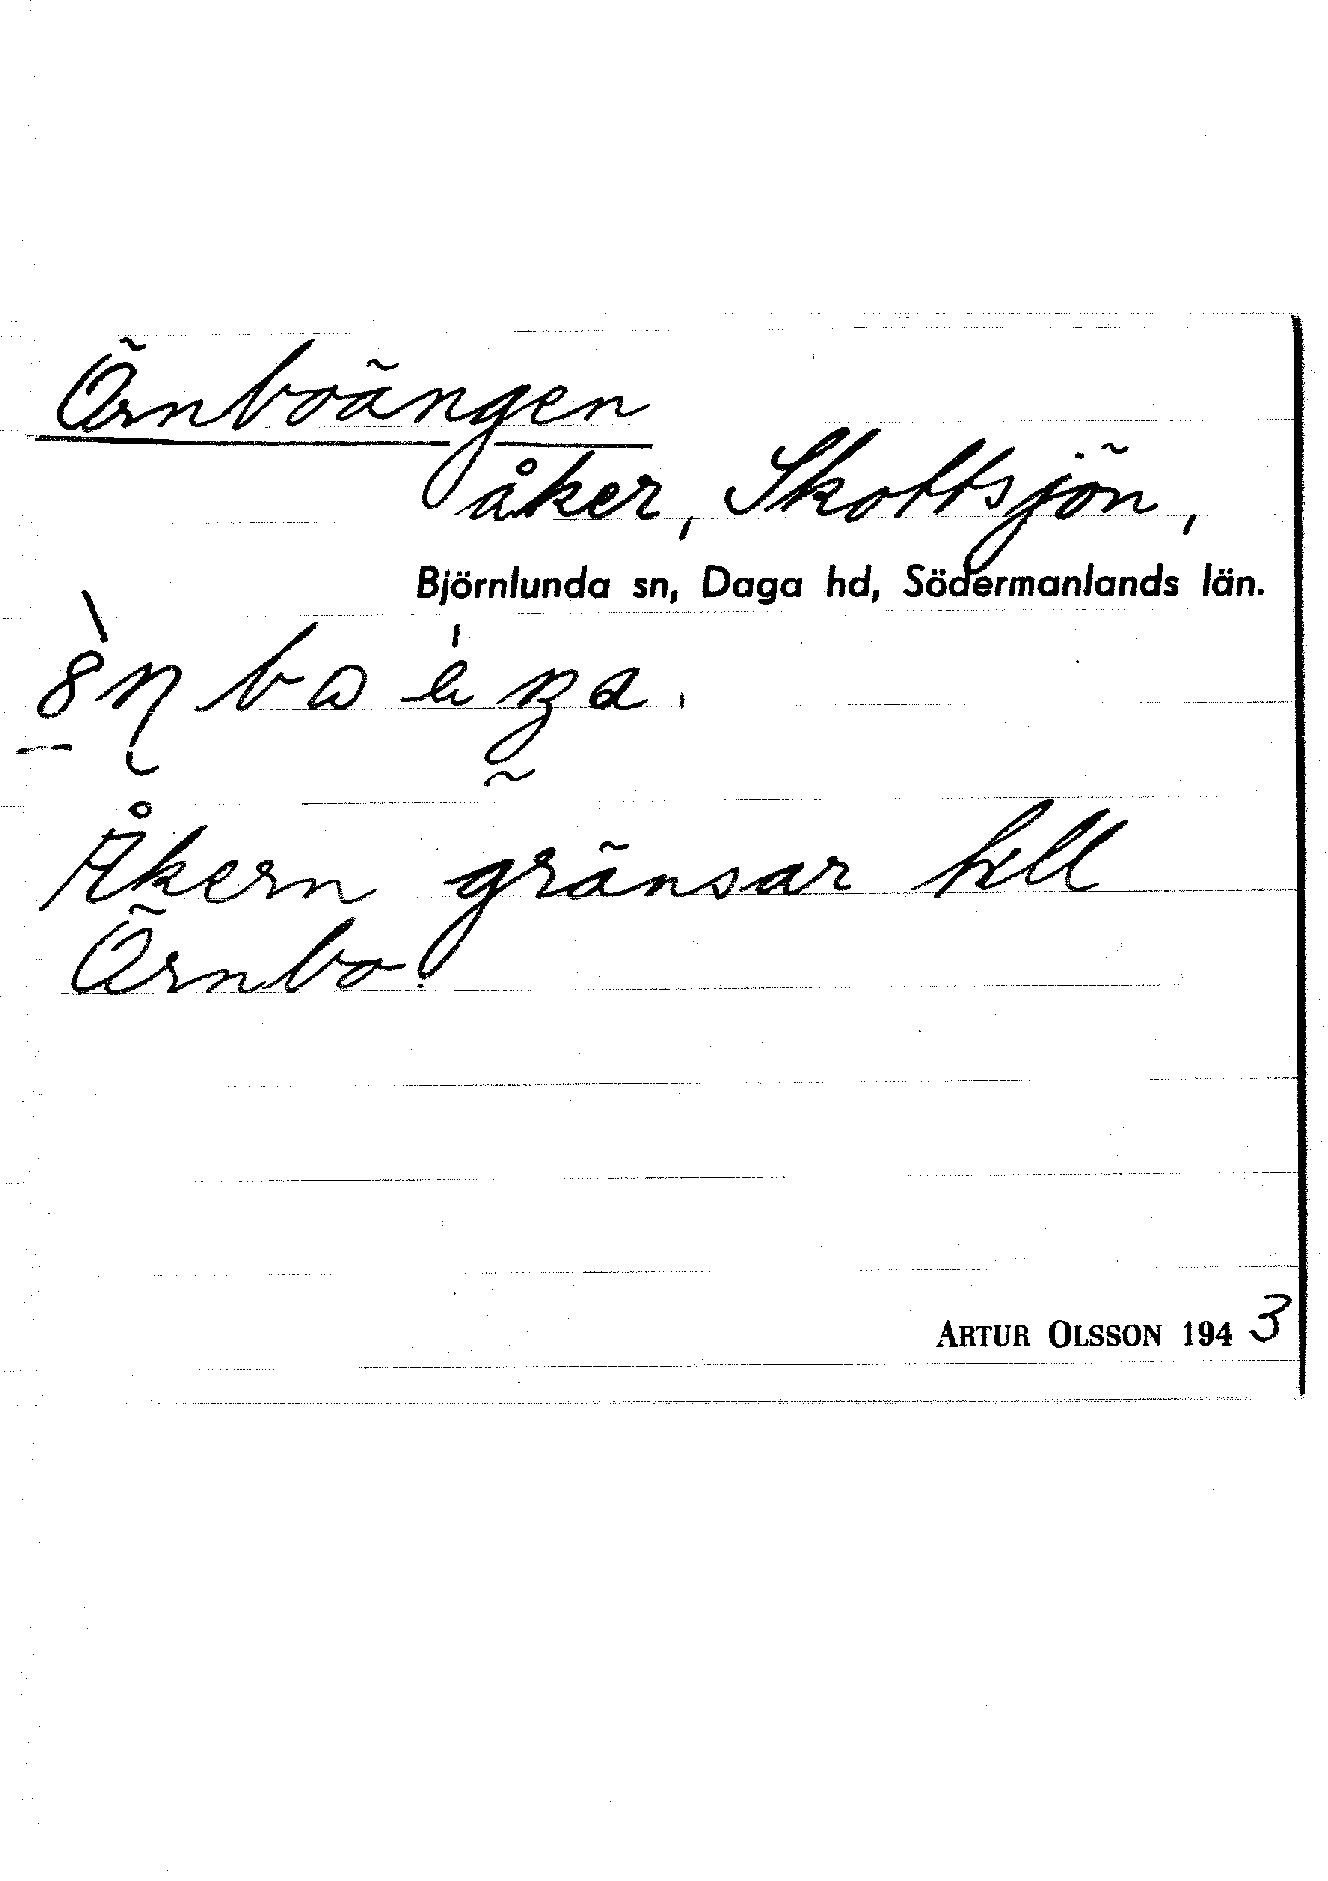 Örnboängen
åker, Skottsjön,
Björnlunda sn, Daga hd, Södermanlands län.
Åkern gränsar till
Örnbo.
ARTUR OLSSON 1943